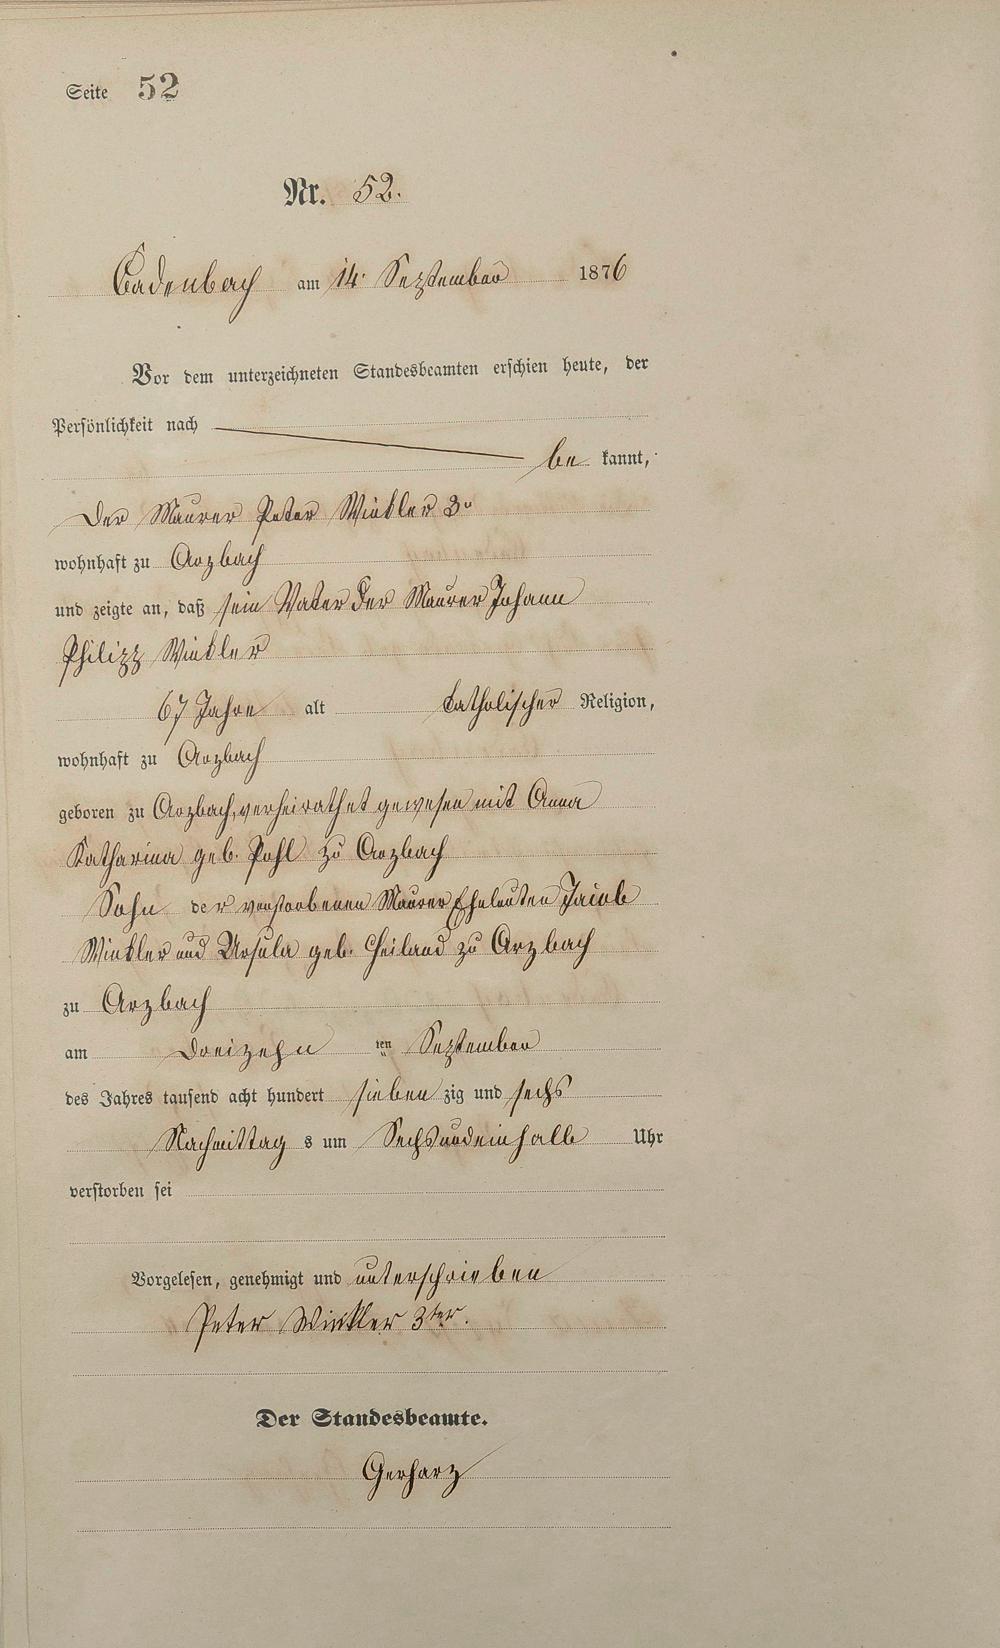 Seite 52
Nr. 52.
Cadenbach am 14. September 1876
Vor dem unterzeichneten Standesbeamten erschien heute, der
Persönlichkeit nach
be kannt,
der Maurer Peter Winkler 3r
wohnhaft zu Arzbach
und zeigte an, daß sein Vater der Maurer Johann
Philipp Winkler
67 Jahre alt katholischer Religion,
wohnhaft zu Arzbach
geboren zu Arzbach, verheirathet gewesen mit Anna
Katharina geb. Pohl zu Arzbach
Sohn der verstorbenen Maurer Eheleuten Jacob
Winkler und Ursula geb. zu Arzbach
zu Arzbach
am dreizehn ten September
des Jahres tausend acht hundert sieben zig und sechs
Nachmittag s um Sechsundeinhalb Uhr
verstorben sei
Vorgelesen, genehmigt und unterschrieben
Peter Winkler 3ter.
Der Standesbeamte.
Gerharz